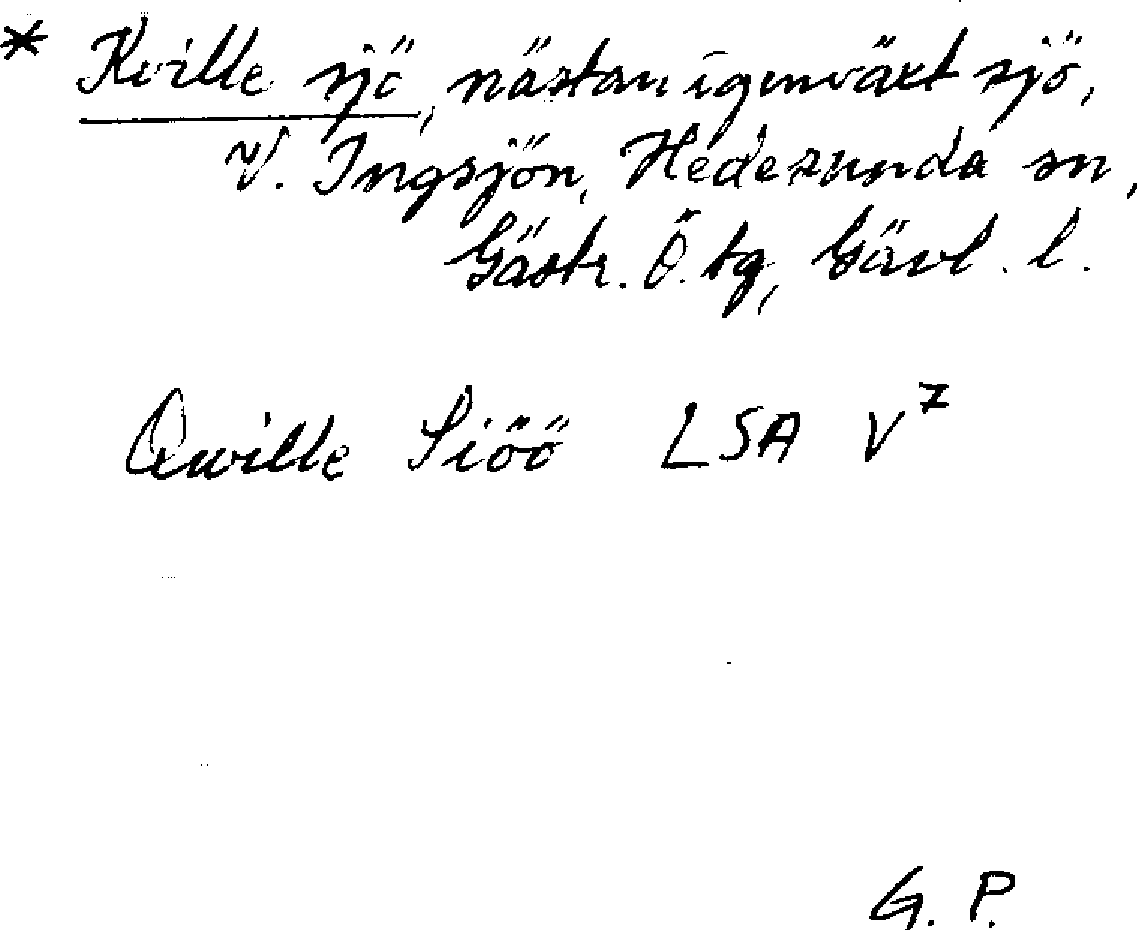 * Kville sjö, nästan igenväxt sjö,
V. Ingsjön, Hedesunda sn,
Gästr. Ö. tg, Gävl. l.
Qwille Siöö LSA V⁷
G. P.